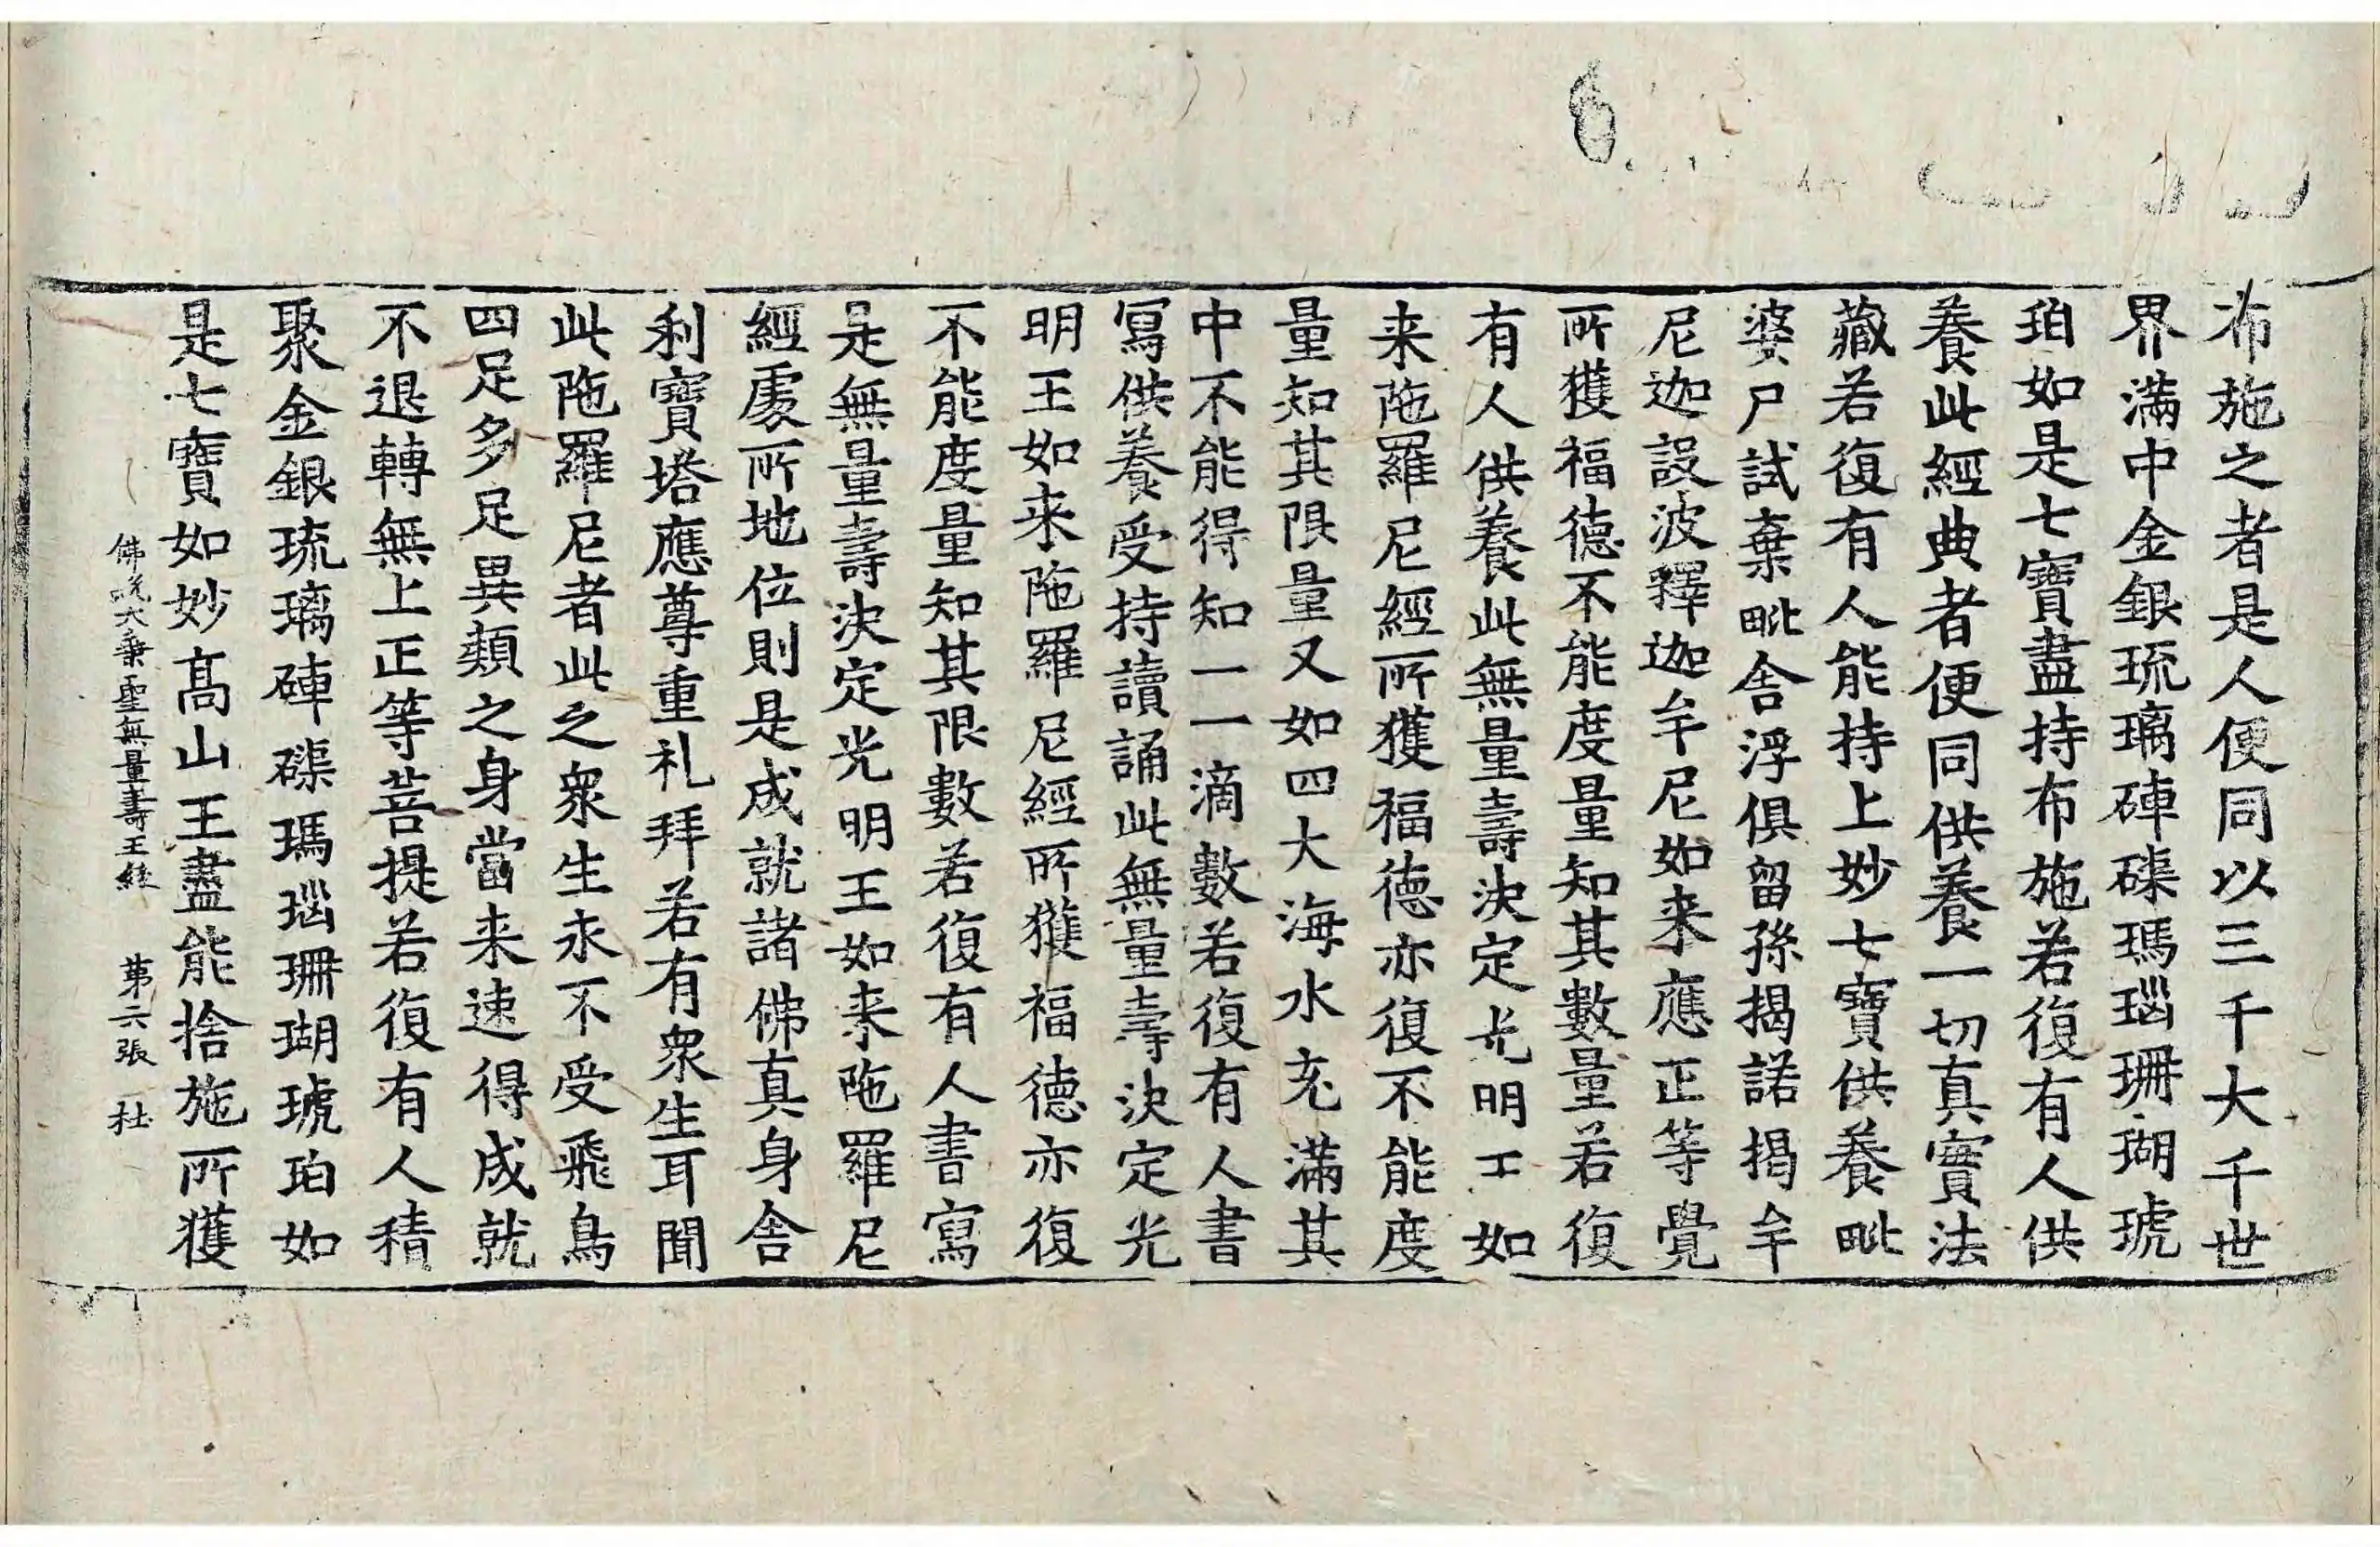 布施之者是人便同以三千大千世
界滿中金銀琉璃硨磲瑪瑙珊瑚琥
珀如是七寶盡持布施若復有人供
養此經典者便同供養一切真實法
藏若復有人能持上妙七寶供養毗
婆尸試棄毗舍浮俱留孫揭諾揭牟
尼迦設波釋迦牟尼如来應正等覺
所獲福德不能度量知其數量若復
有人供養此無量壽決定光明王如
来陁羅尼經所獲福德亦復不能度
量知其限量又如四大海水充滿其
中不能得知一一滴數若復有人書
寫供養受持讀誦此無量壽決定光
明王如来陁羅尼經所獲福德亦復
不能度量知其限數若復有人書寫
是無量壽決定光明王如来陁羅尼
經處所地位則是成就諸佛真身舍
利寶塔應尊重礼拜若有衆生耳聞
此陁羅尼者此之衆生永不受飛鳥
四足多足異類之身當来速得成就
不退轉無上正等菩提若復有人積
聚金銀琉璃硨磲瑪瑙珊瑚琥珀如
是七寶如妙高山王盡能捨施所獲
佛說大乗聖無量壽王経 第六張 杜